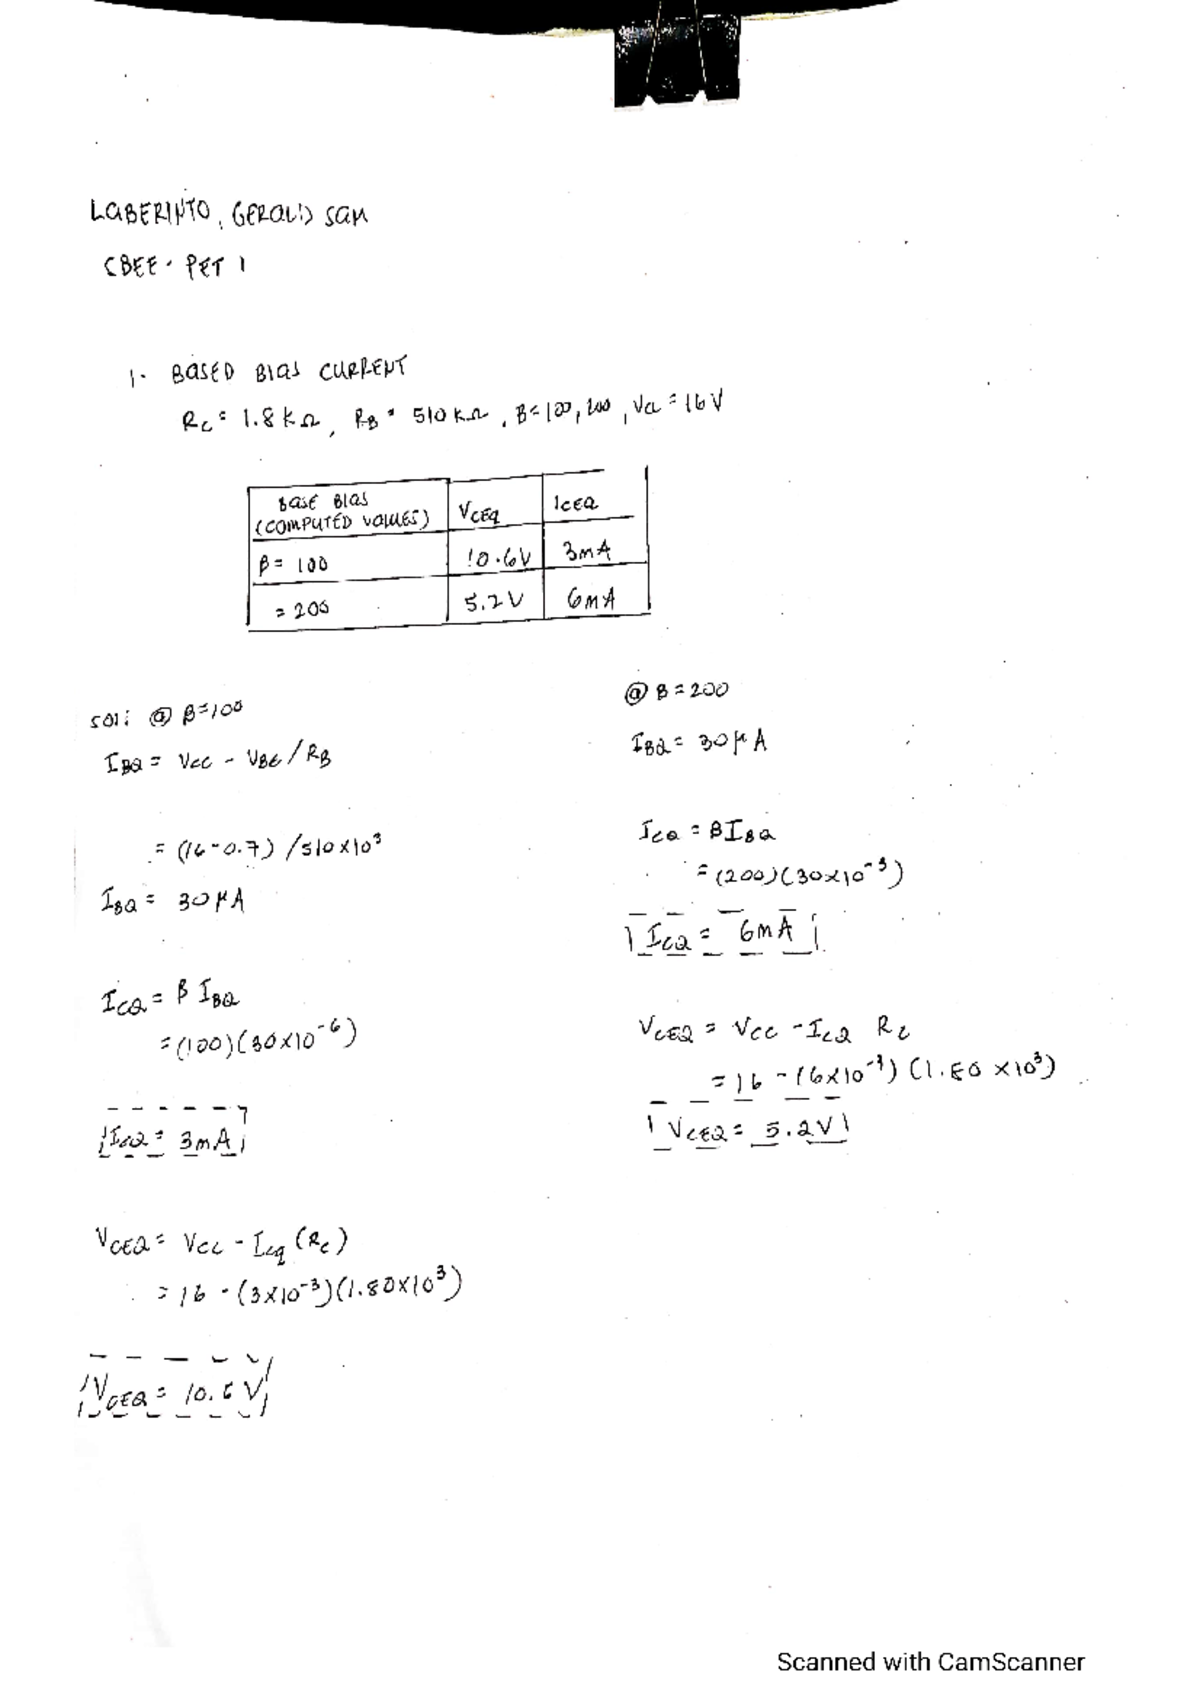 LABERINTO, GERALD SAM
CBEE - PET 1
1. BASED BIAS CURRENT
RC = 1.8 KΩ, RB = 510 KΩ, B = 100, 200, VCC = 16V
BASE BIAS (COMPUTED VALUES) VCEQ ICEQ
β = 100 10.6V 3mA
= 200 5.2V 6mA
sol: @ β=100
IBQ = VCC - VBE / RB
= (16-0.7) / 510x10³
IBQ = 30 μA
ICQ = β IBQ
= (100)(30x10⁻⁶)
ICQ = 3mA
VCEQ = VCC - ICQ (RC)
= 16 - (3x10⁻³)(1.80x10³)
VCEQ = 10.6V
@ B = 200
IBQ = 30 μA
ICQ = BIBQ
= (200)(30x10⁻³)
ICQ = 6mA
VCEQ = VCC - ICQ RC
= 16 - (6x10⁻³)(1.80 x10³)
VCEQ = 5.2V
Scanned with CamScanner